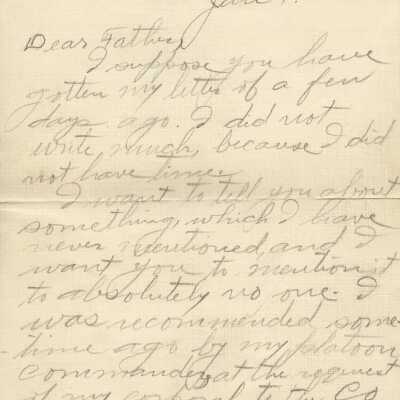 Jan
Dear Father,
I suppose you have
gotten my letter of a few
days ago. I did not
write much, because I did
not have time.
I want to tell you about
something, which I have
never mentioned, and I
want you to mention it
to absolutely no one. I
was recommended some-
time ago by my platoon
commander, at the request
of my corporal to the CO